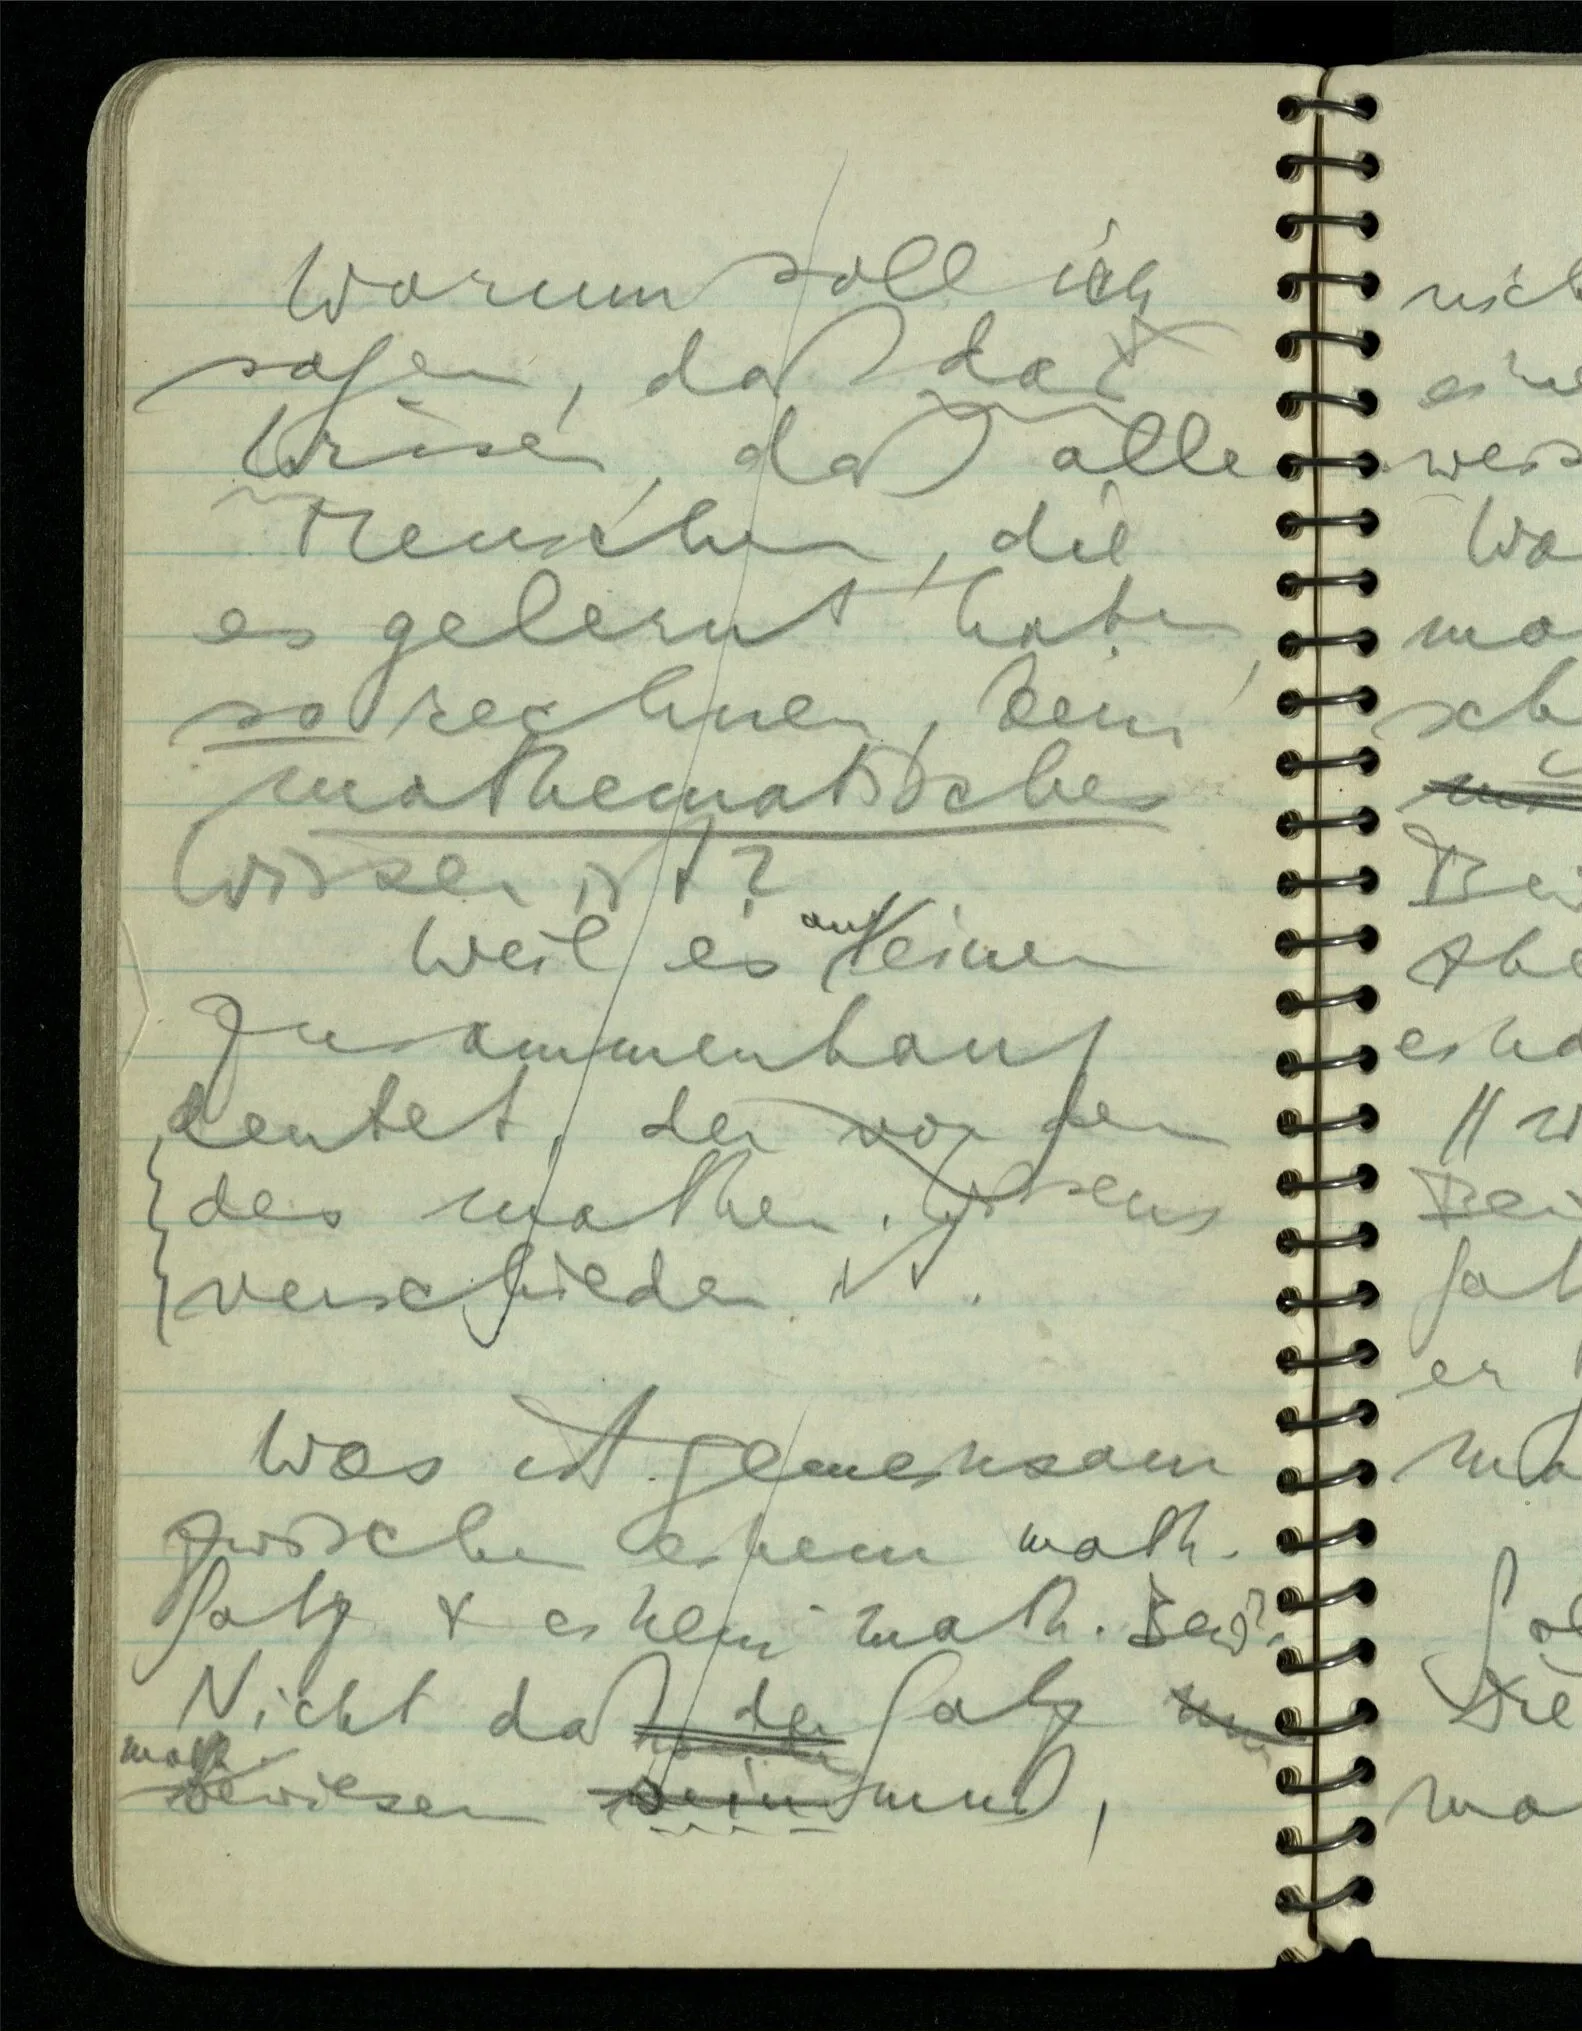 Warum soll ich
sagen, daß das
Wissen, daß alle
Menschen, die
es gelernt haben,
so rechnen, kein
mathematisches
Wissen ist?
Weil es auf einen
Zusammenhang
deutet, der von dem
des mathem. Wissens
verschieden ist.
Was ist gemeinsam
zwischen einem math.
Satz & einem math. Bew?
Nicht daß der Satz
math
bewiesen sein muß,
nich
eine
Wa
ma
sch
Bei
Abe
es ha
Bei
Sat
er
ma
Die
ma